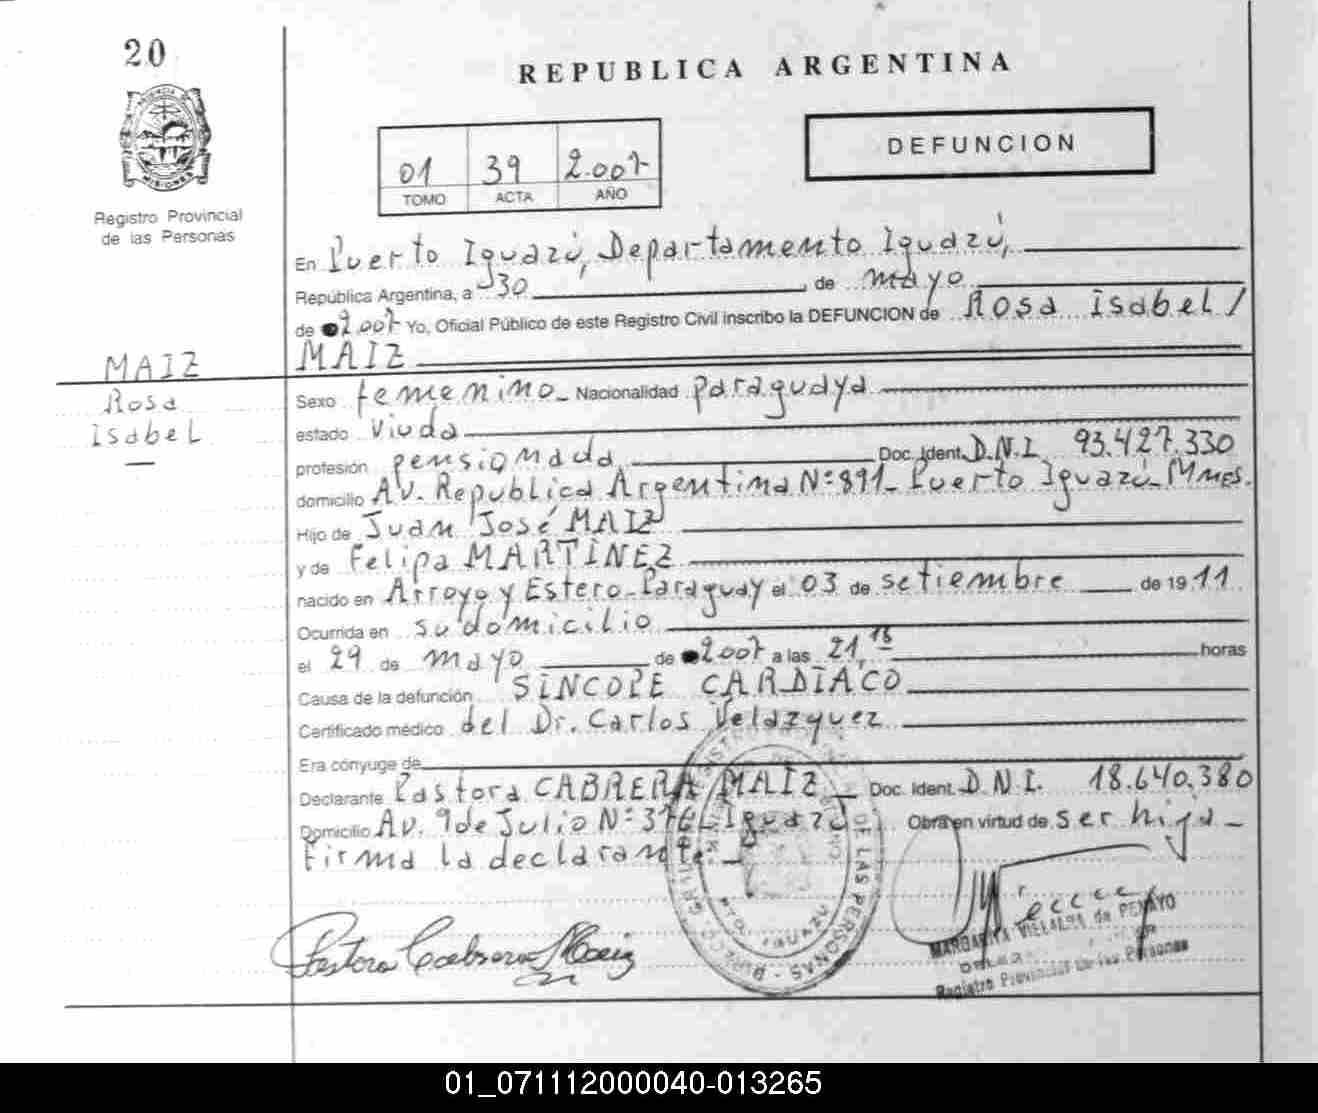 20
REPUBLICA ARGENTINA
DEFUNCION
01 39 2.007
TOMO ACTA AÑO
PROVINCIA DE
MISIONES
Registro Provincial
de las Personas
En Puerto Iguazú, Departamento Iguazú,
República Argentina, a 30 de mayo
de 2007 Yo, Oficial Público de este Registro Civil inscribo la DEFUNCION de Rosa Isabel /
MAIZ
MAIZ
Rosa
Isabel
Sexo femenino Nacionalidad paraguaya
estado Viuda
profesión pensionada Doc. Ident. D.N.I. 93.427.330
domicilio AV. Republica Argentina Nº 891_ Puerto Iguazú_ Mnes.
Hijo de Juan José MAIZ
y de Felipa MARTINEZ
nacido en Arroyo y Estero_Paraguay el 03 de setiembre de 1911
Ocurrida en su domicilio
el 29 de mayo de 2007 a las 21,15 horas
Causa de la defunción SINCOPE CARDIACO
Certificado médico del Dr. Carlos Velazquez
Era cónyuge de
Declarante Pastora CABRERA MAIZ _ Doc. Ident. D.N.I. 18.640.380
Domicilio AV. 9 de Julio Nº Iguazú Obra en virtud de ser hija_
Firma la declarante_
Pastora Cabrera Maiz
DE LAS PERSONAS
PTO. IGUAZU
MARGARITA VILLALBA de PENAYO
Registro Provincial de las Personas
01_071112000040-013265